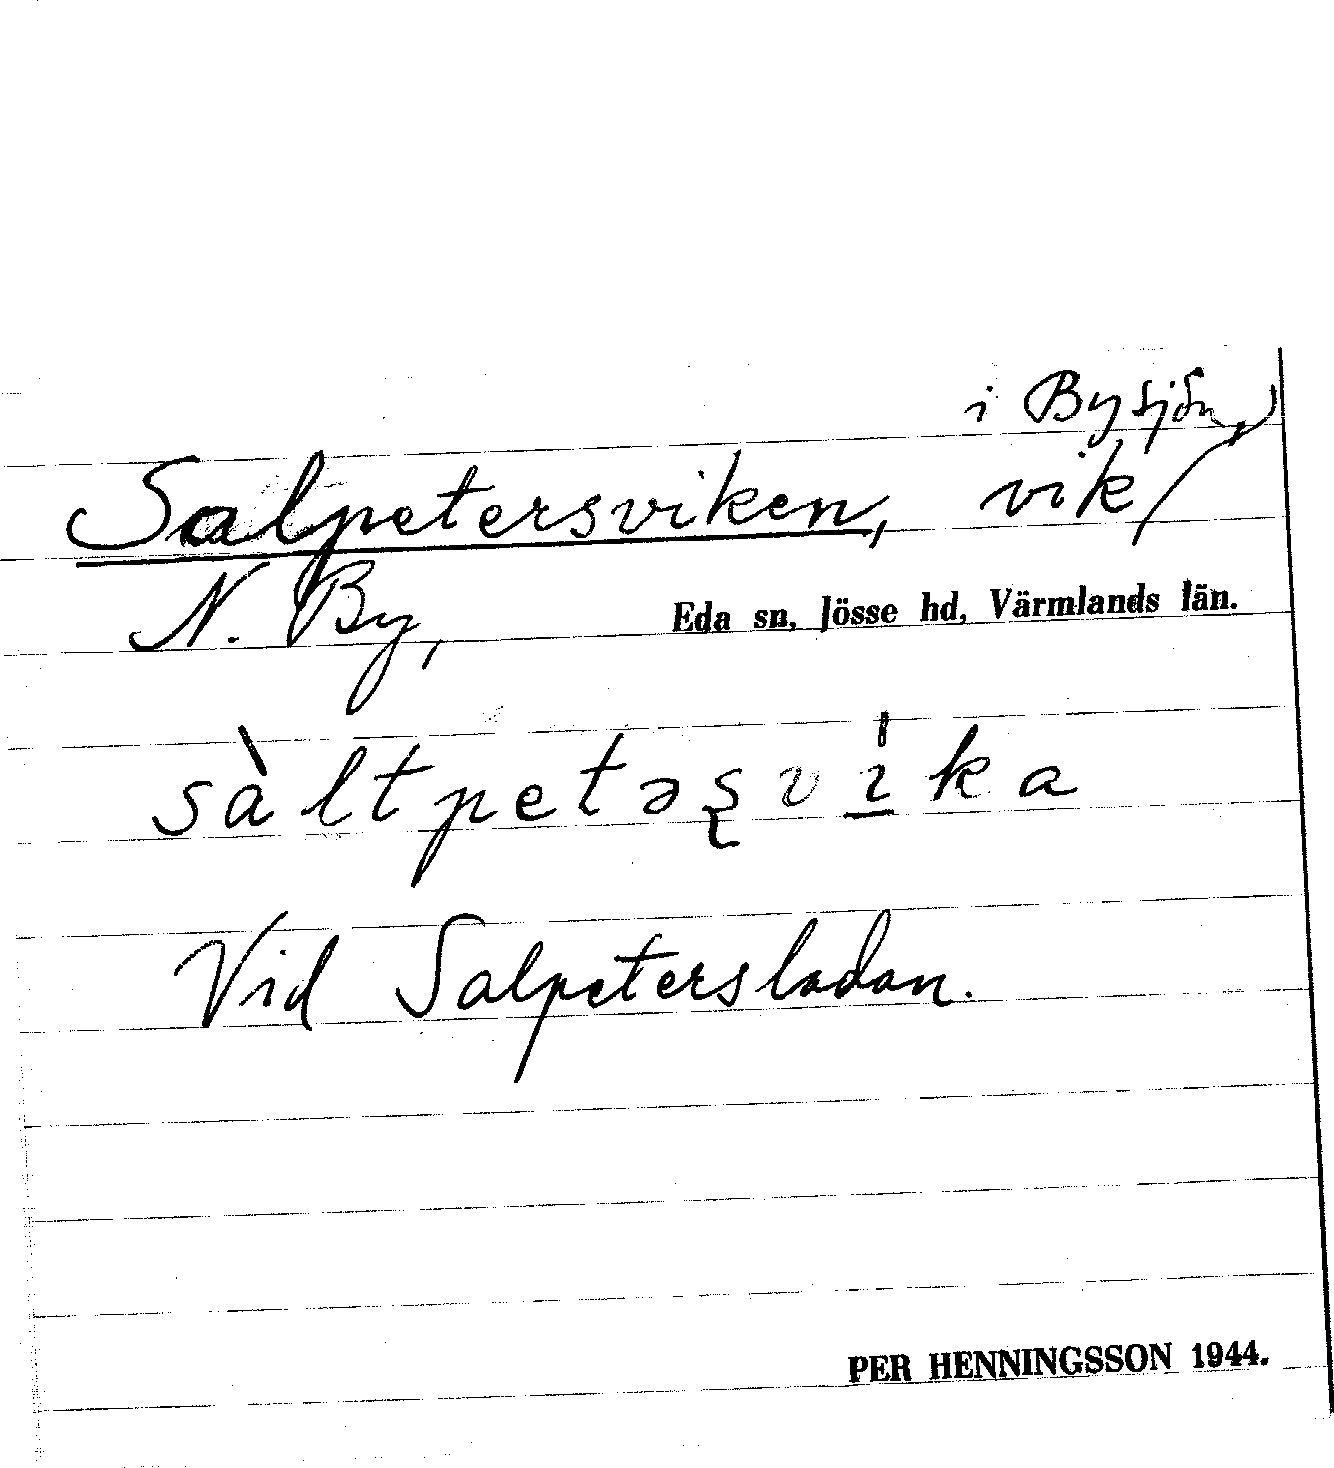 i Bysjön,
Salpetersviken, vik
N. By, Eda sn, Jösse hd, Värmlands län.
sàltpetəʂví̱ka
Vid Salpetersladan.
PER HENNINGSSON 1944.